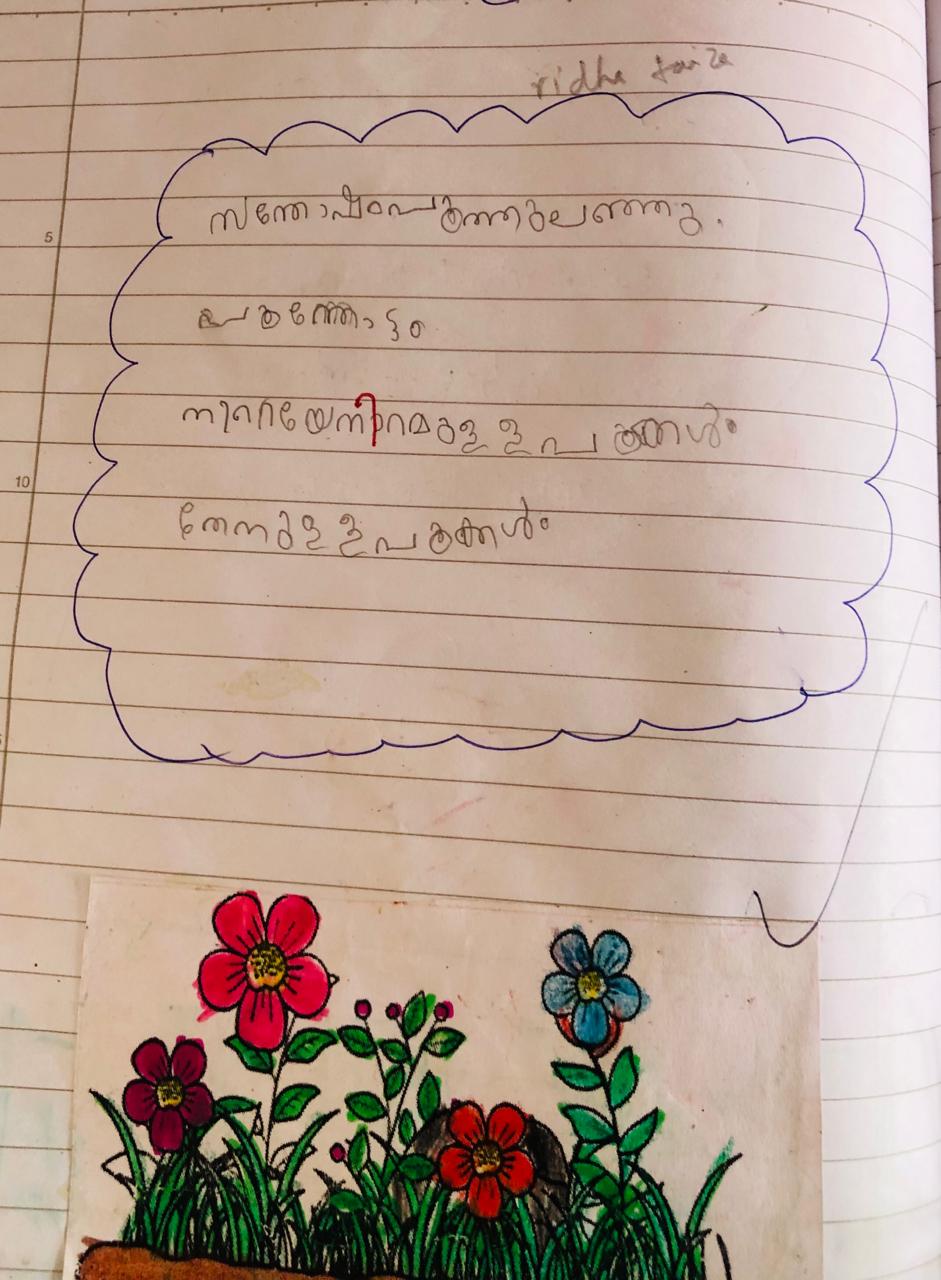 ridha faiza
5
സന്തോഷംപൂത്തുലഞ്ഞു.
പൂന്തോട്ടം
നിറയേനിറമുള്ള പൂക്കൾ
10
തേനുള്ളപൂക്കൾ